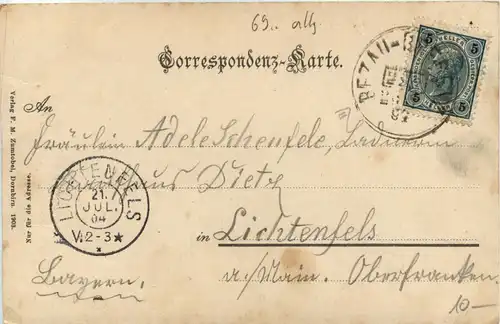 69. allg
Correspondenz-Karte.
BEZAU-B
5 5
5 5
An
Fräulein Adele Schenfele, Ladnerin
Dietz
LICHTENFELS
21.
JUL.
04
V.2-3★
in Lichtenfels
Bayern.
a./Main. Oberfranken.
10-
Verlag F. M. Zumtobel, Dornbirn. 1903.
Nur für die Adresse.